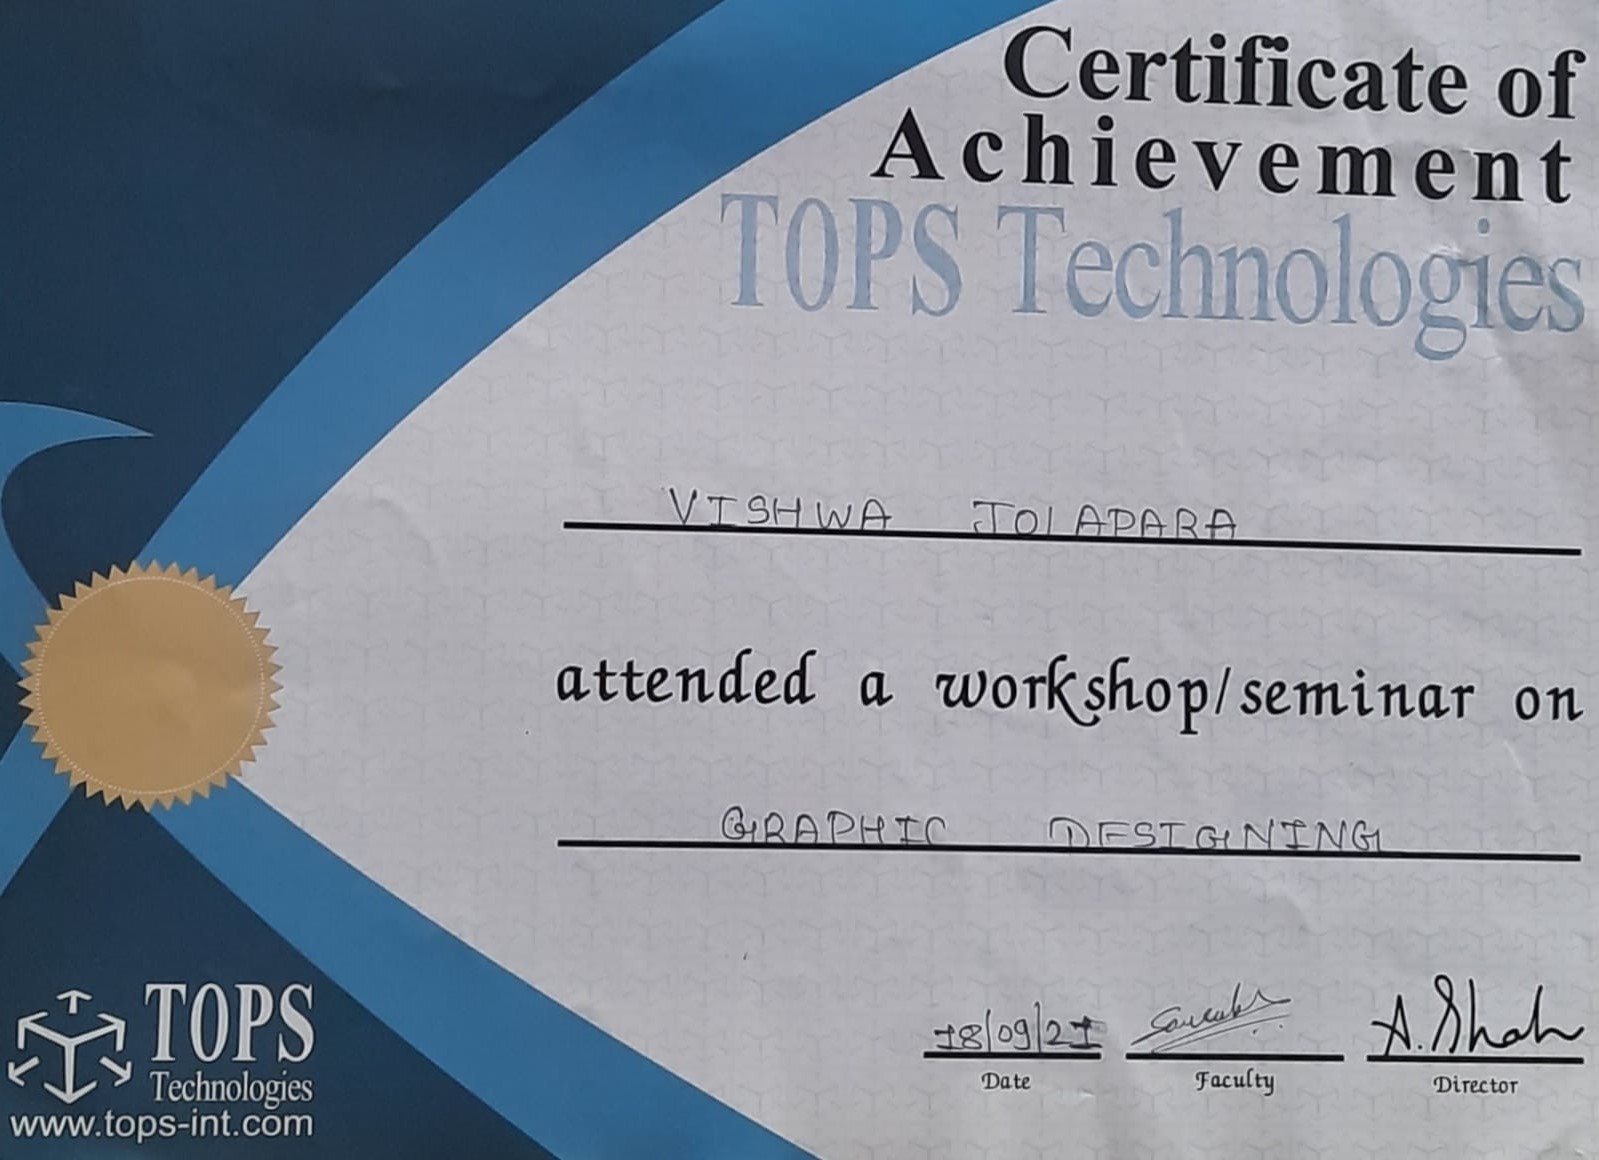 Certificate of
Achievement
TOPS Technologies
VISHWA JOLAPARA
attended a workshop/seminar on
GRAPHIC DESIGNING
18/09/21
A. Shah
Date
Faculty
Director
TOPS
Technologies
www.tops-int.com